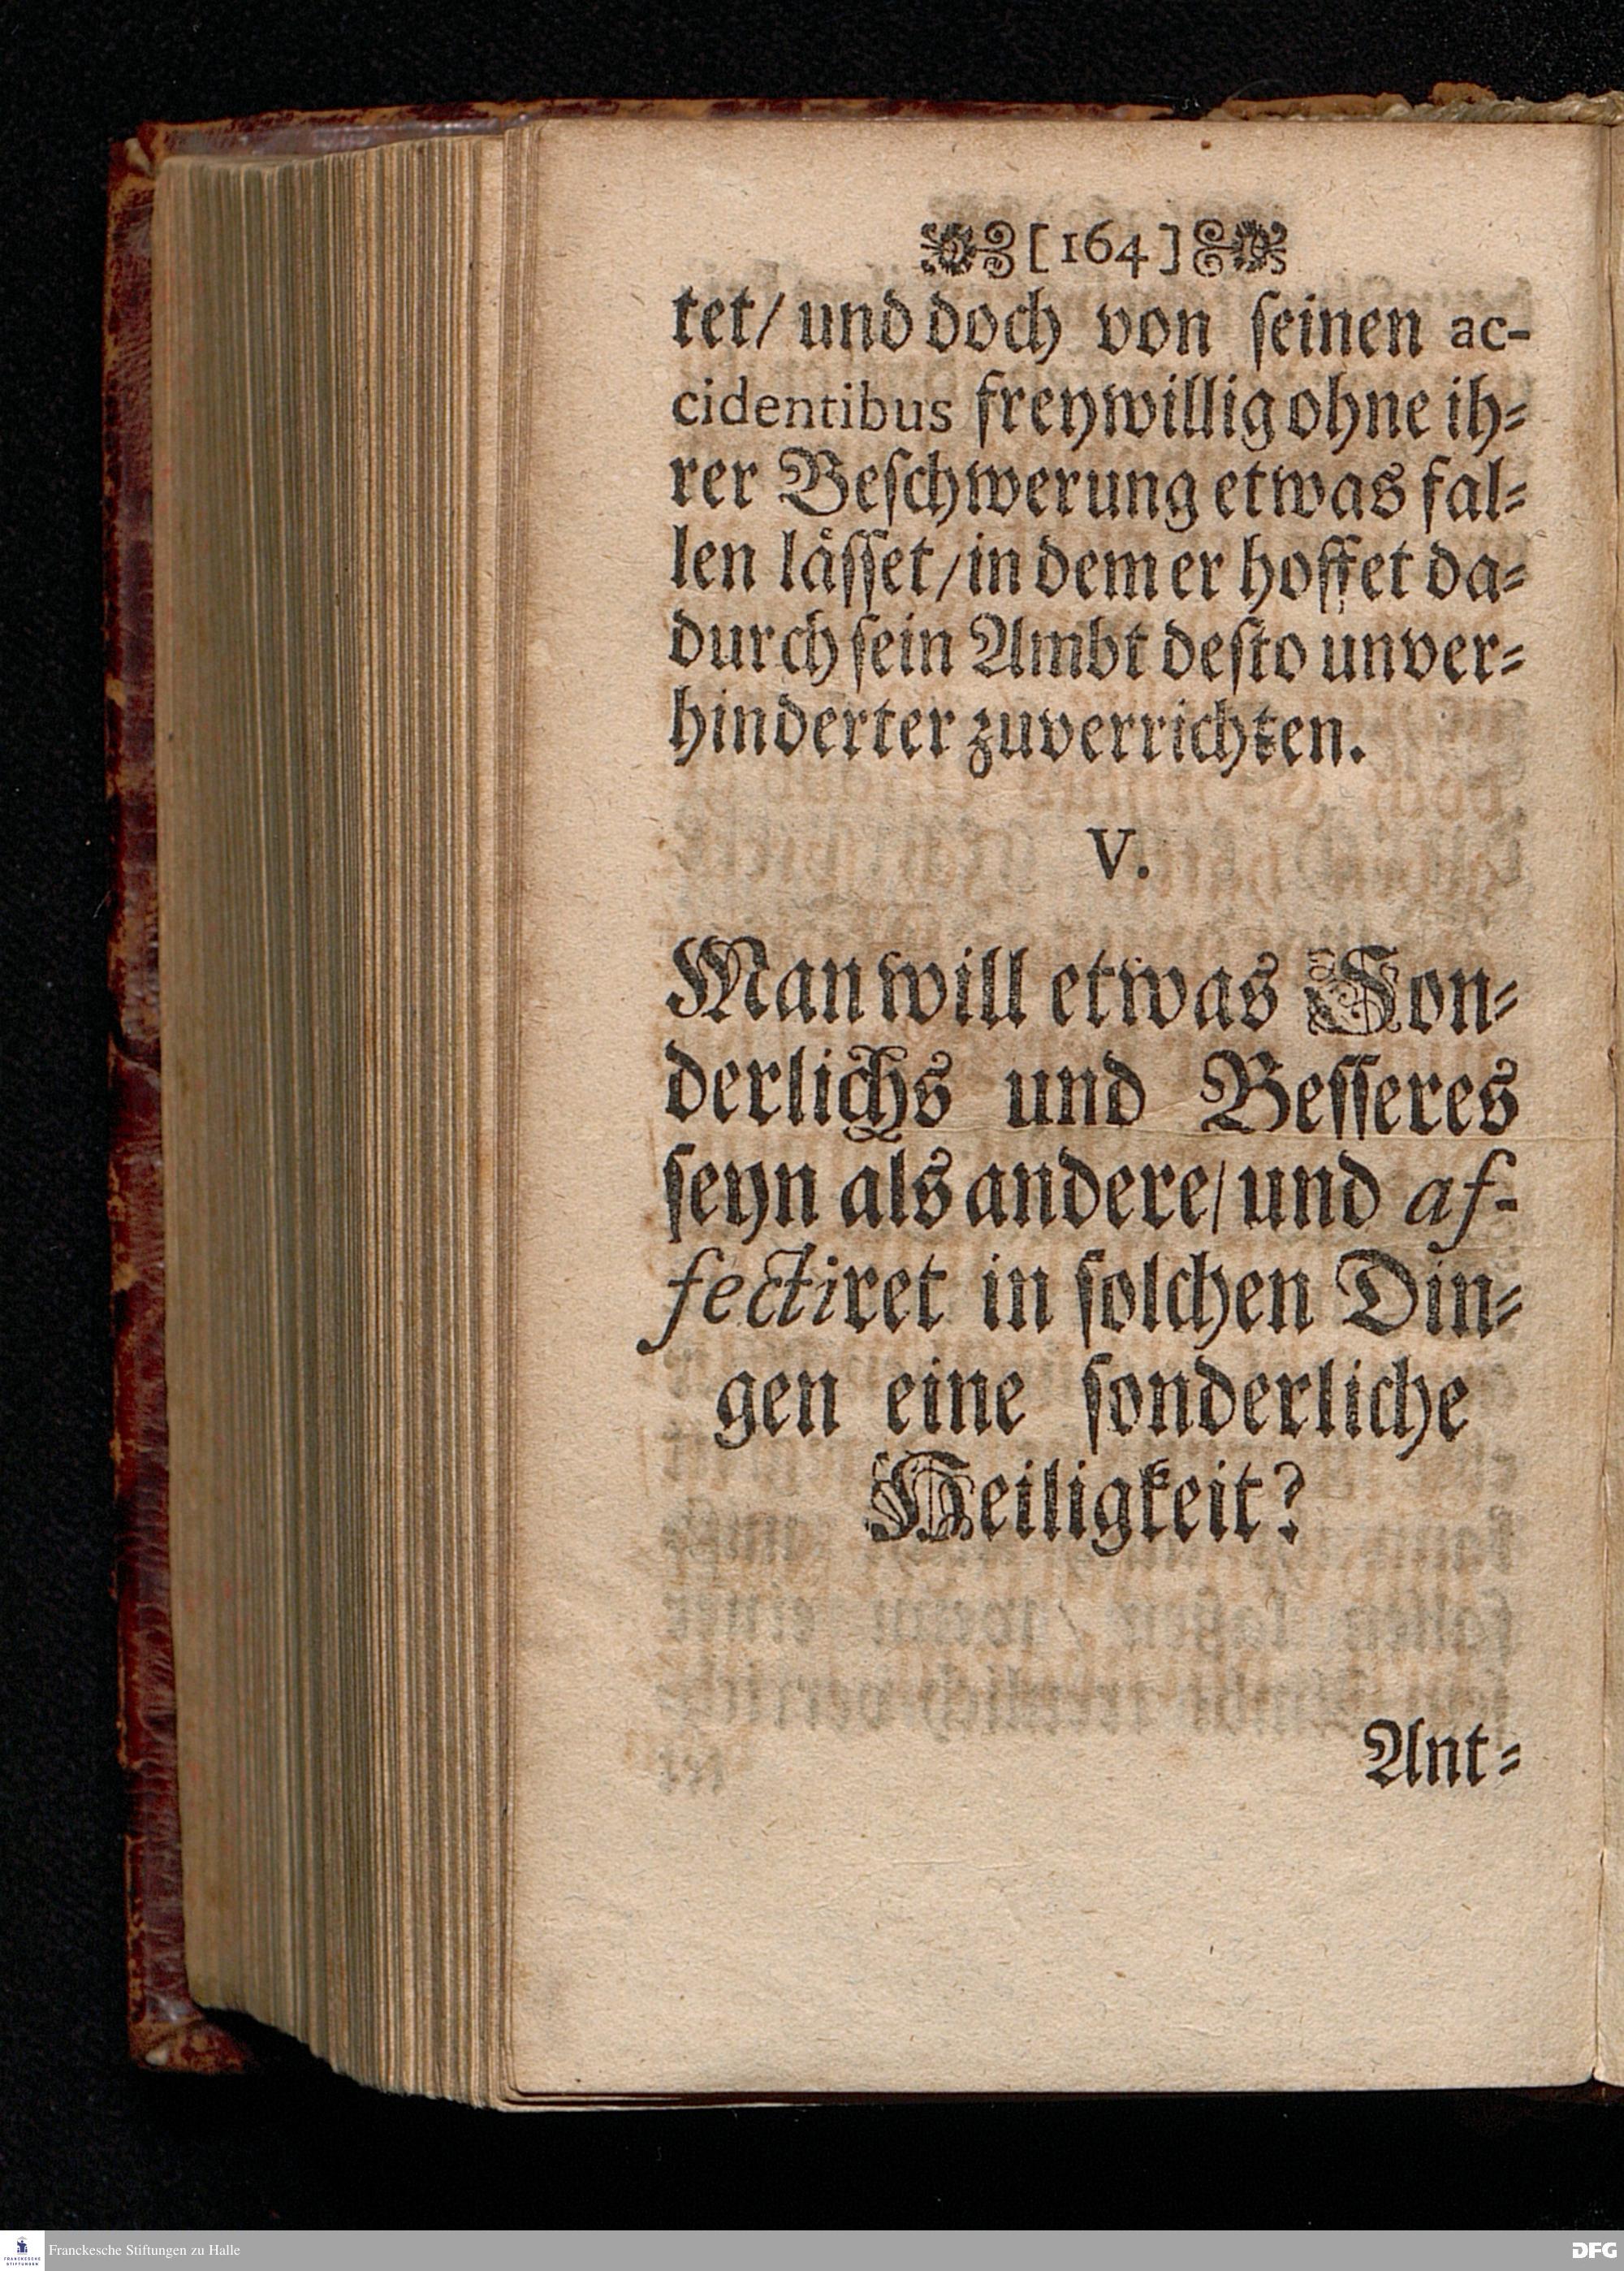 [164]
tet/ und doch von ſeinen ac-
cidentibus freywillig ohne ih⸗
rer Beſchwerung etwas fal⸗
len laͤſſet/ in dem er hoffet da⸗
durch ſein Ambt deſto unver⸗
hinderter zuverrichten.
V.
Man will etwas Son⸗
derlichs und Beſſeres
ſeyn als andere/ und af-
fectiret in ſolchen Din⸗
gen eine ſonderliche
Heiligkeit?
Ant⸗
FRANCKESCHE
STIFTUNGEN
Franckesche Stiftungen zu Halle
DFG